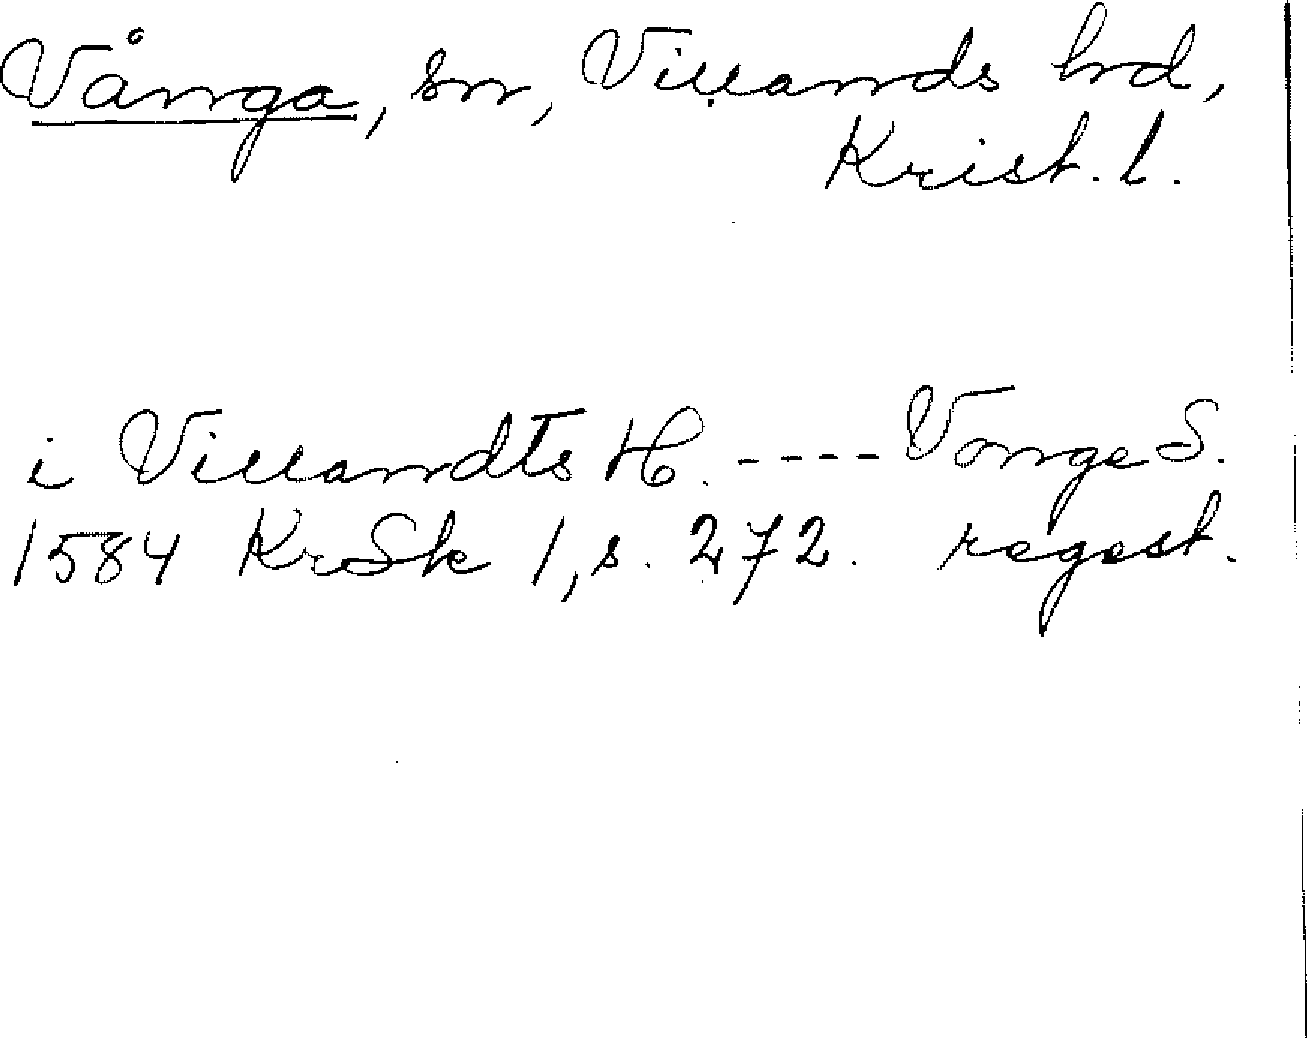 Vånga, sn, Villands hd,
Krist. l.
i Villandts H. ---- Vonge S.
1584 KrSk 1, s. 272. regest.